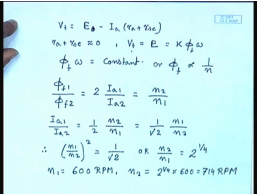 V_t = E_b - I_a (r_a + r_se)
r_a + r_se ≈ 0 , V_t = E = K ϕ_f ω
ϕ_f ω = Constant. or ϕ_f ∝ 1/n
ϕ_f1/ϕ_f2 = 2 I_a1/I_a2 = n_2/n_1
I_a1/I_a2 = 1/2 n_2/n_1 = 1/√2 n_1/n_2
∴ (n_1/n_2)^2 = 1/√2 OR n_2/n_1 = 2^1/4
n_1 = 600 RPM, n_2 = 2^1/4 × 600 = 714 RPM